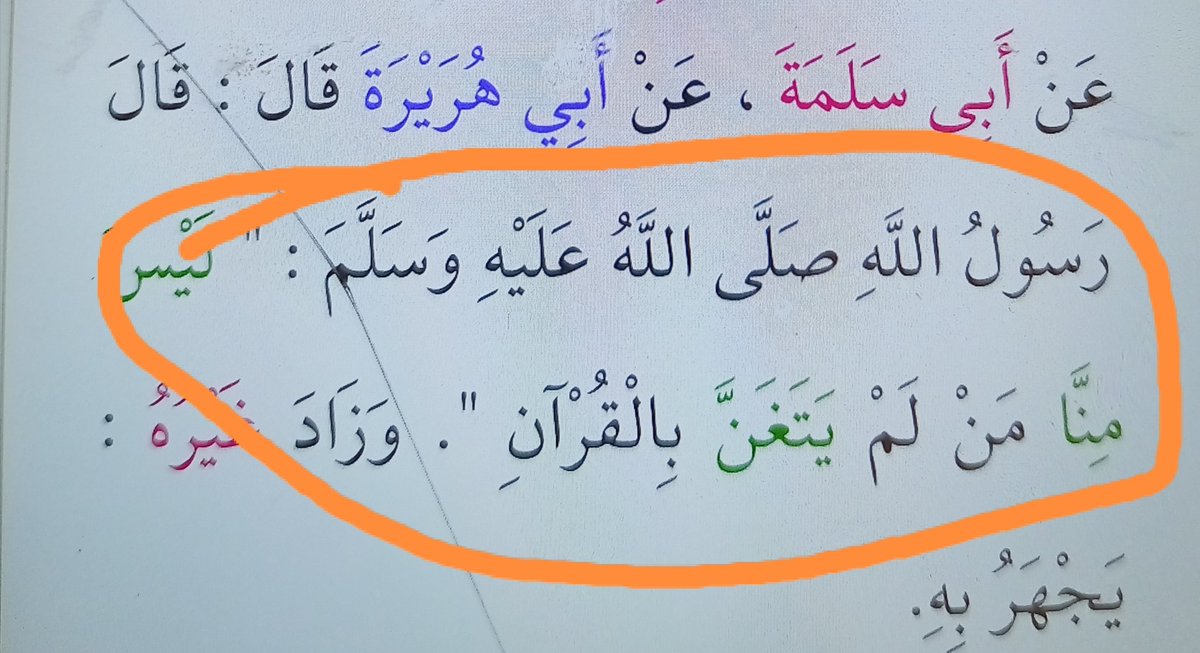 عَنْ أَبِي سَلَمَةَ ، عَنْ أَبِي هُرَيْرَةَ قَالَ : قَالَ
رَسُولُ اللَّهِ صَلَّى اللَّهُ عَلَيْهِ وَسَلَّمَ : " لَيْسَ
مِنَّا مَنْ لَمْ يَتَغَنَّ بِالْقُرْآنِ ". وَزَادَ غَيْرُهُ :
يَجْهَرُ بِهِ.